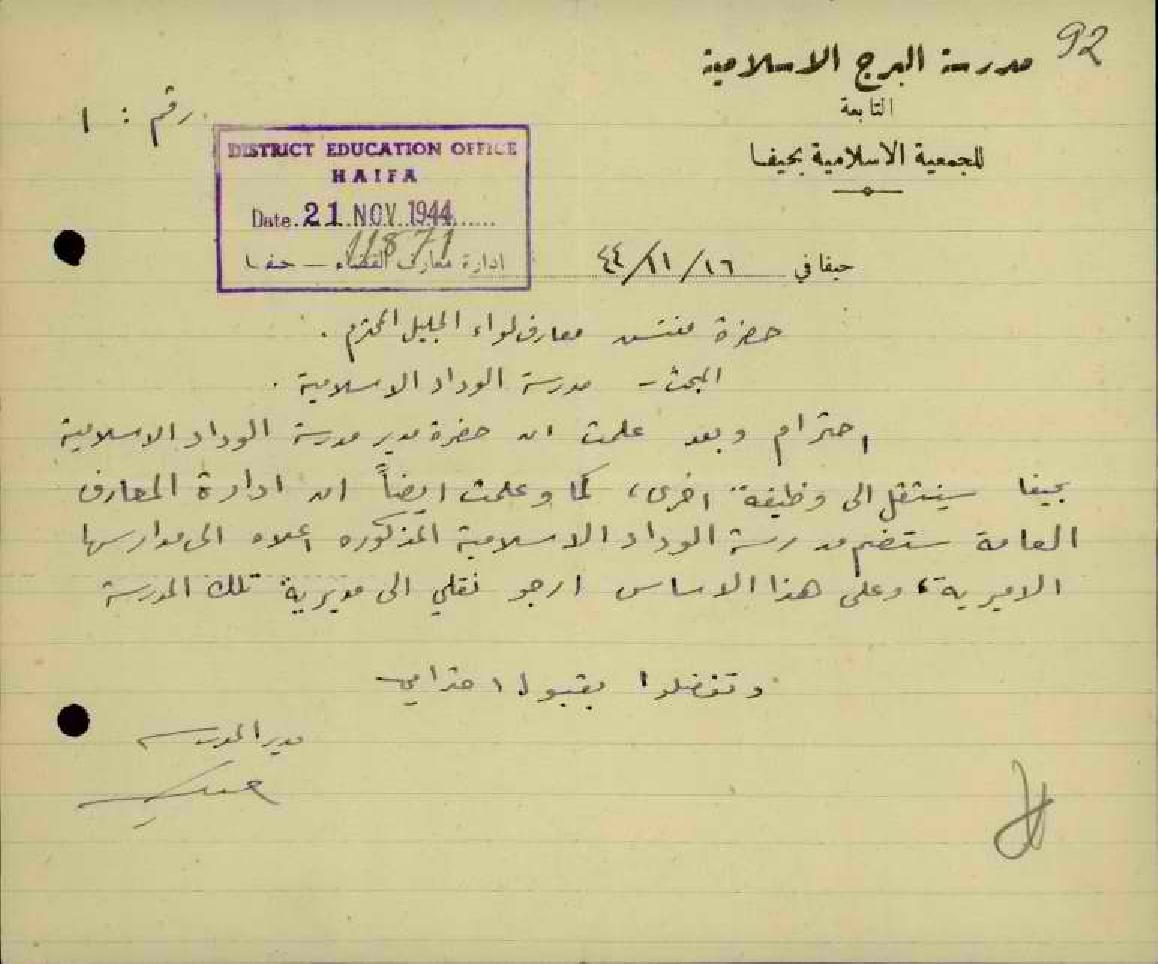 92
مدرسة البرج الاسلامية
التابعة
للجمعية الاسلامية بحيفا
رقم : ١
DISTRICT EDUCATION OFFICE
HAIFA
Date. 21 NOV 1944
11871
ادارة معارف القضاء – حيفا
حيفا في ١٦/١١/٤٤
حضرة مفتش معارف لواء الجليل المحترم .
المبحث – مدرسة الوداد الاسلامية .
احترام وبعد علمت ان حضرة مدير مدرسة الوداد الاسلامية
بحيفا سينتقل الى وظيفة اخرى، كما وعلمت ايضاً ان ادارة المعارف
العامة ستضم مدرسة الوداد الاسلامية المذكوره اعلاه الى مدارسها
الاميرية، وعلى هذا الاساس ارجو نقلي الى مديرية تلك المدرسة
وتفضلوا بقبول احترامي
مدير المدرسه